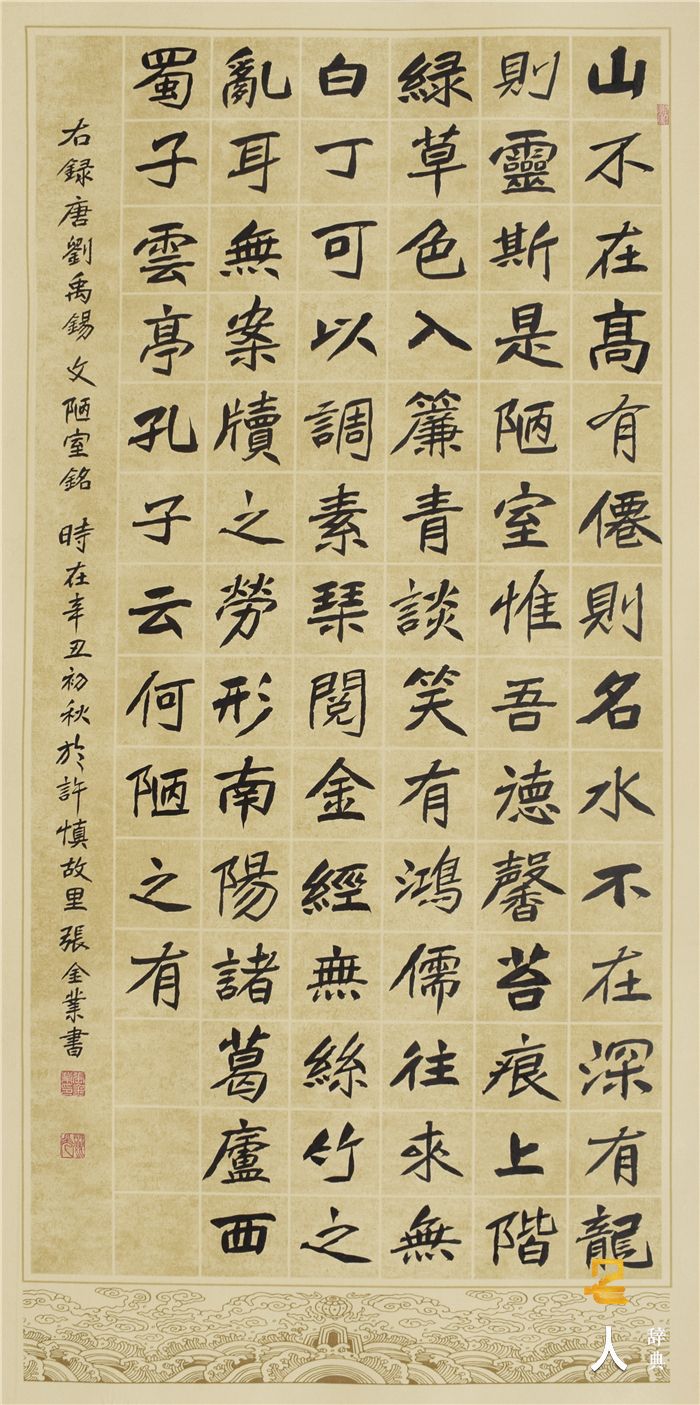 山不在高有僊則名水不在深有龍
則靈斯是陋室惟吾德馨苔痕上階
緑草色入簾青談笑有鴻儒往來無
白丁可以調素琹閱金經無絲竹之
亂耳無案牘之勞形南陽諸葛廬西
蜀子雲亭孔子云何陋之有
右録唐劉禹錫文陋室銘時在辛丑初秋於許慎故里張金業書
名人
辞典